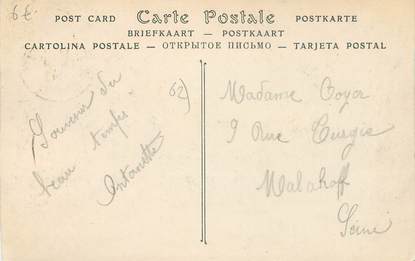 6€
POST CARD Carte Postale POSTKARTE
BRIEFKAART — POSTKAART
CARTOLINA POSTALE — ОТКРЫТОЕ ПИСЬМО — TARJETA POSTAL
Souvenir du
beau temps
Antoinette
62)
Madame
9 Rue
Malakoff
Seine